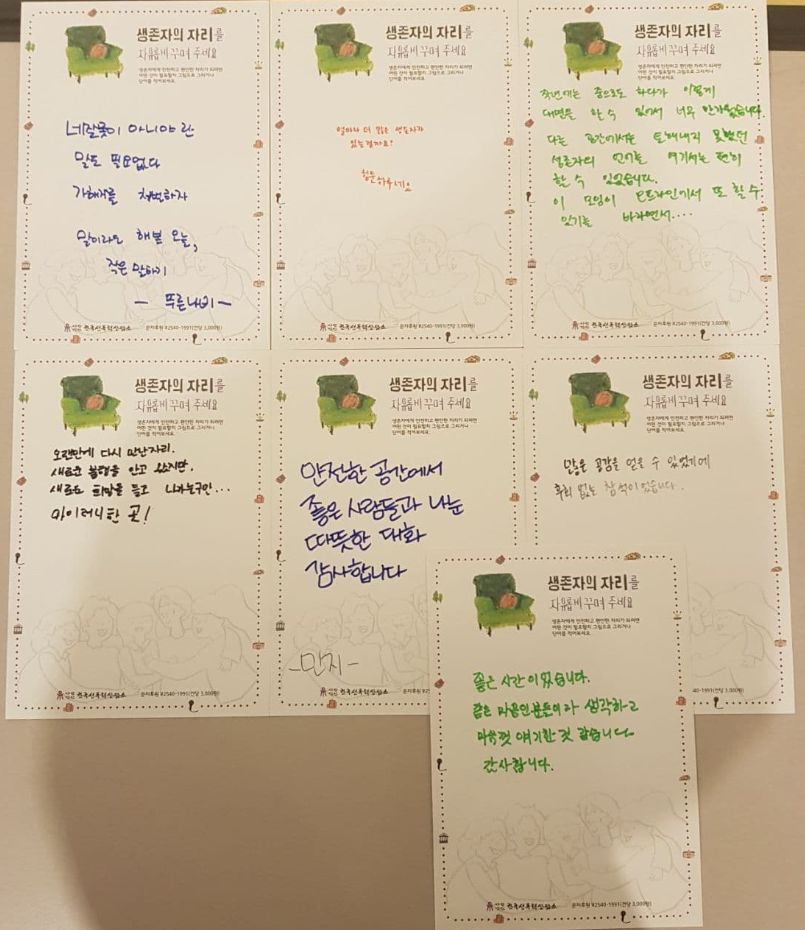 생존자의 자리를
자유롭게 꾸며 주세요
생존자에게 안전하고 편안한 자리가 되려면
어떤 것이 필요할지 그림으로 그리거나
단어를 적어보세요.
네잘못이 아니야 란
말도 필요없다
가해자를 처벌하자
말이라도 해본 오늘,
작은 말하기
— 푸른나비 —
한국성폭력상담소
문자후원 #2540-1991(건당 3,000원)
생존자의 자리를
자유롭게 꾸며 주세요
생존자에게 안전하고 편안한 자리가 되려면
어떤 것이 필요할지 그림으로 그리거나
단어를 적어보세요.
얼마나 더 많은 생존자가
있는걸까요?
한국성폭력상담소
문자후원 #2540-1991(건당 3,000원)
생존자의 자리를
자유롭게 꾸며 주세요
생존자에게 안전하고 편안한 자리가 되려면
어떤 것이 필요할지 그림으로 그리거나
단어를 적어보세요.
작년에는 줌으로도 하다가 이렇게
대면을 할 수 있어서 너무 반가웠습니다.
다른 공간에서는 토해내지 못했던
생존자의 언어를 여기서는 편히
할 수 있었습니다.
이 모임이 오프라인에서 또 할 수
있기를 바라면서....
한국성폭력상담소
문자후원 #2540-1991(건당 3,000원)
생존자의 자리를
자유롭게 꾸며 주세요
생존자에게 안전하고 편안한 자리가 되려면
어떤 것이 필요할지 그림으로 그리거나
단어를 적어보세요.
오랜만에 다시 만난자리.
새로운 불행을 안고 왔지만,
새로운 희망을 듣고 나가는구만...
아이러니한 곳!
한국성폭력상담소
문자후원 #2540-1991(건당 3,000원)
생존자의 자리를
자유롭게 꾸며 주세요
생존자에게 안전하고 편안한 자리가 되려면
어떤 것이 필요할지 그림으로 그리거나
단어를 적어보세요.
안전한 공간에서
좋은 사람들과 나눈
따뜻한 대화
감사합니다
-민지-
한국성폭력상담소
문자후원 #2540-1991(건당 3,000원)
생존자의 자리를
자유롭게 꾸며 주세요
생존자에게 안전하고 편안한 자리가 되려면
어떤 것이 필요할지 그림으로 그리거나
단어를 적어보세요.
많은 공감을 얻을 수 있었기에
후회 없는 참석이었습니다.
1991(건당 3,000원)
생존자의 자리를
자유롭게 꾸며 주세요
생존자에게 안전하고 편안한 자리가 되려면
어떤 것이 필요할지 그림으로 그리거나
단어를 적어보세요.
좋은 시간이었습니다.
같은 마음인분들이라 생각하고
마음껏 얘기한 것 같습니다
감사합니다.
한국성폭력상담소
문자후원 #2540-1991(건당 3,000원)